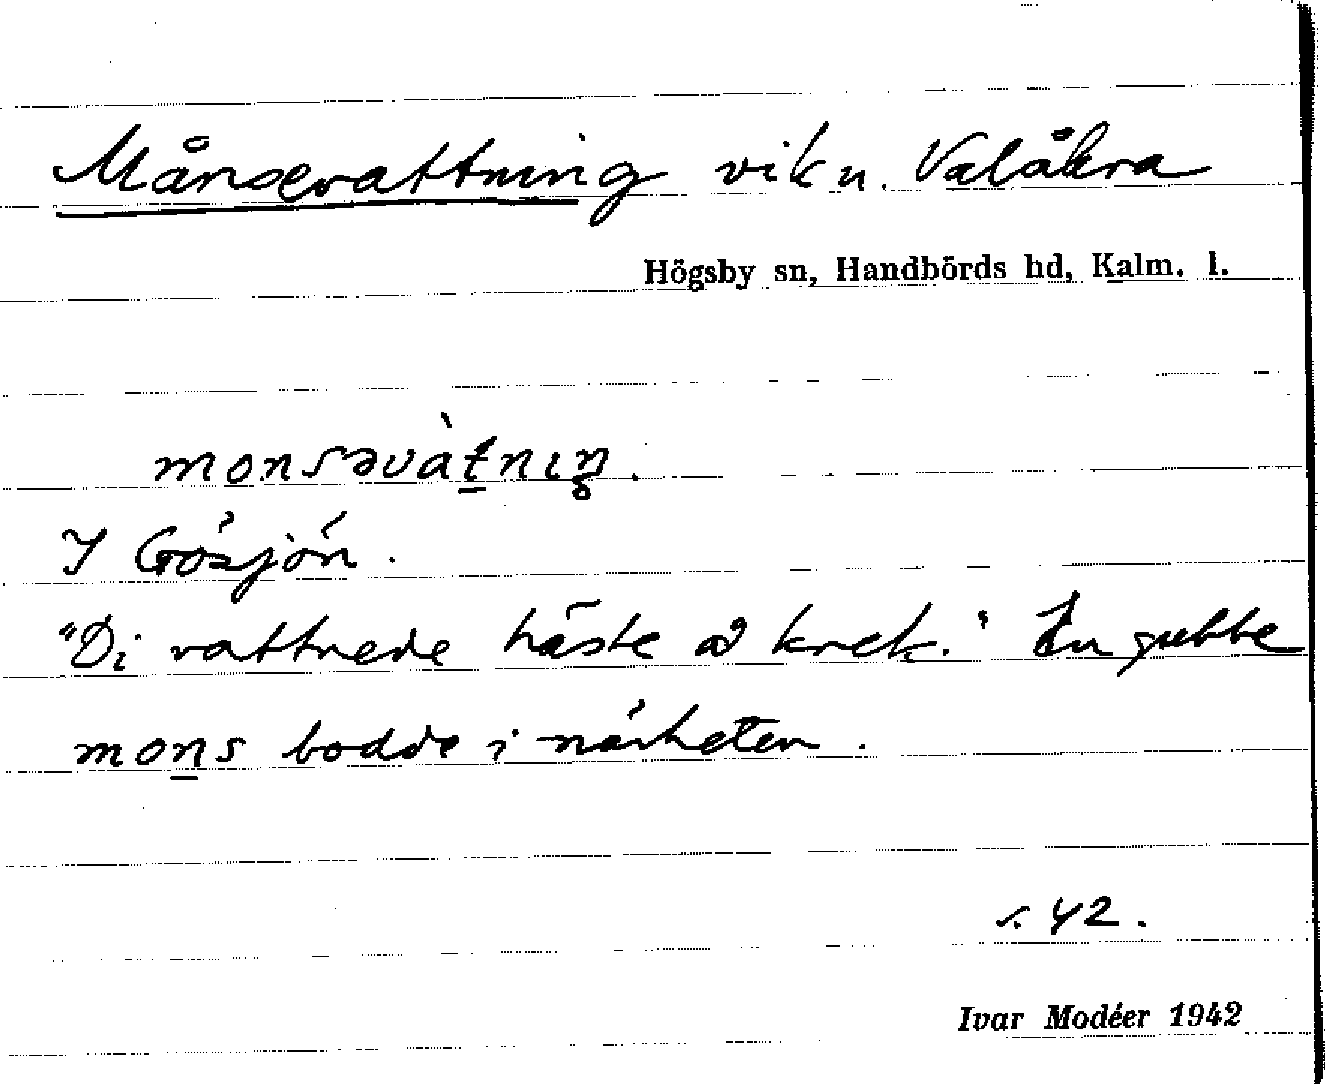 Månsevattning vik u. Valåkra
Högsby sn, Handbörds hd, Kalm. l.
monsəvàtnıŋ.
I Gösjön.
"Di vattnede häste å krek." En gubbe
mons bodde i närheten.
s. 42.
Ivar Modéer 1942